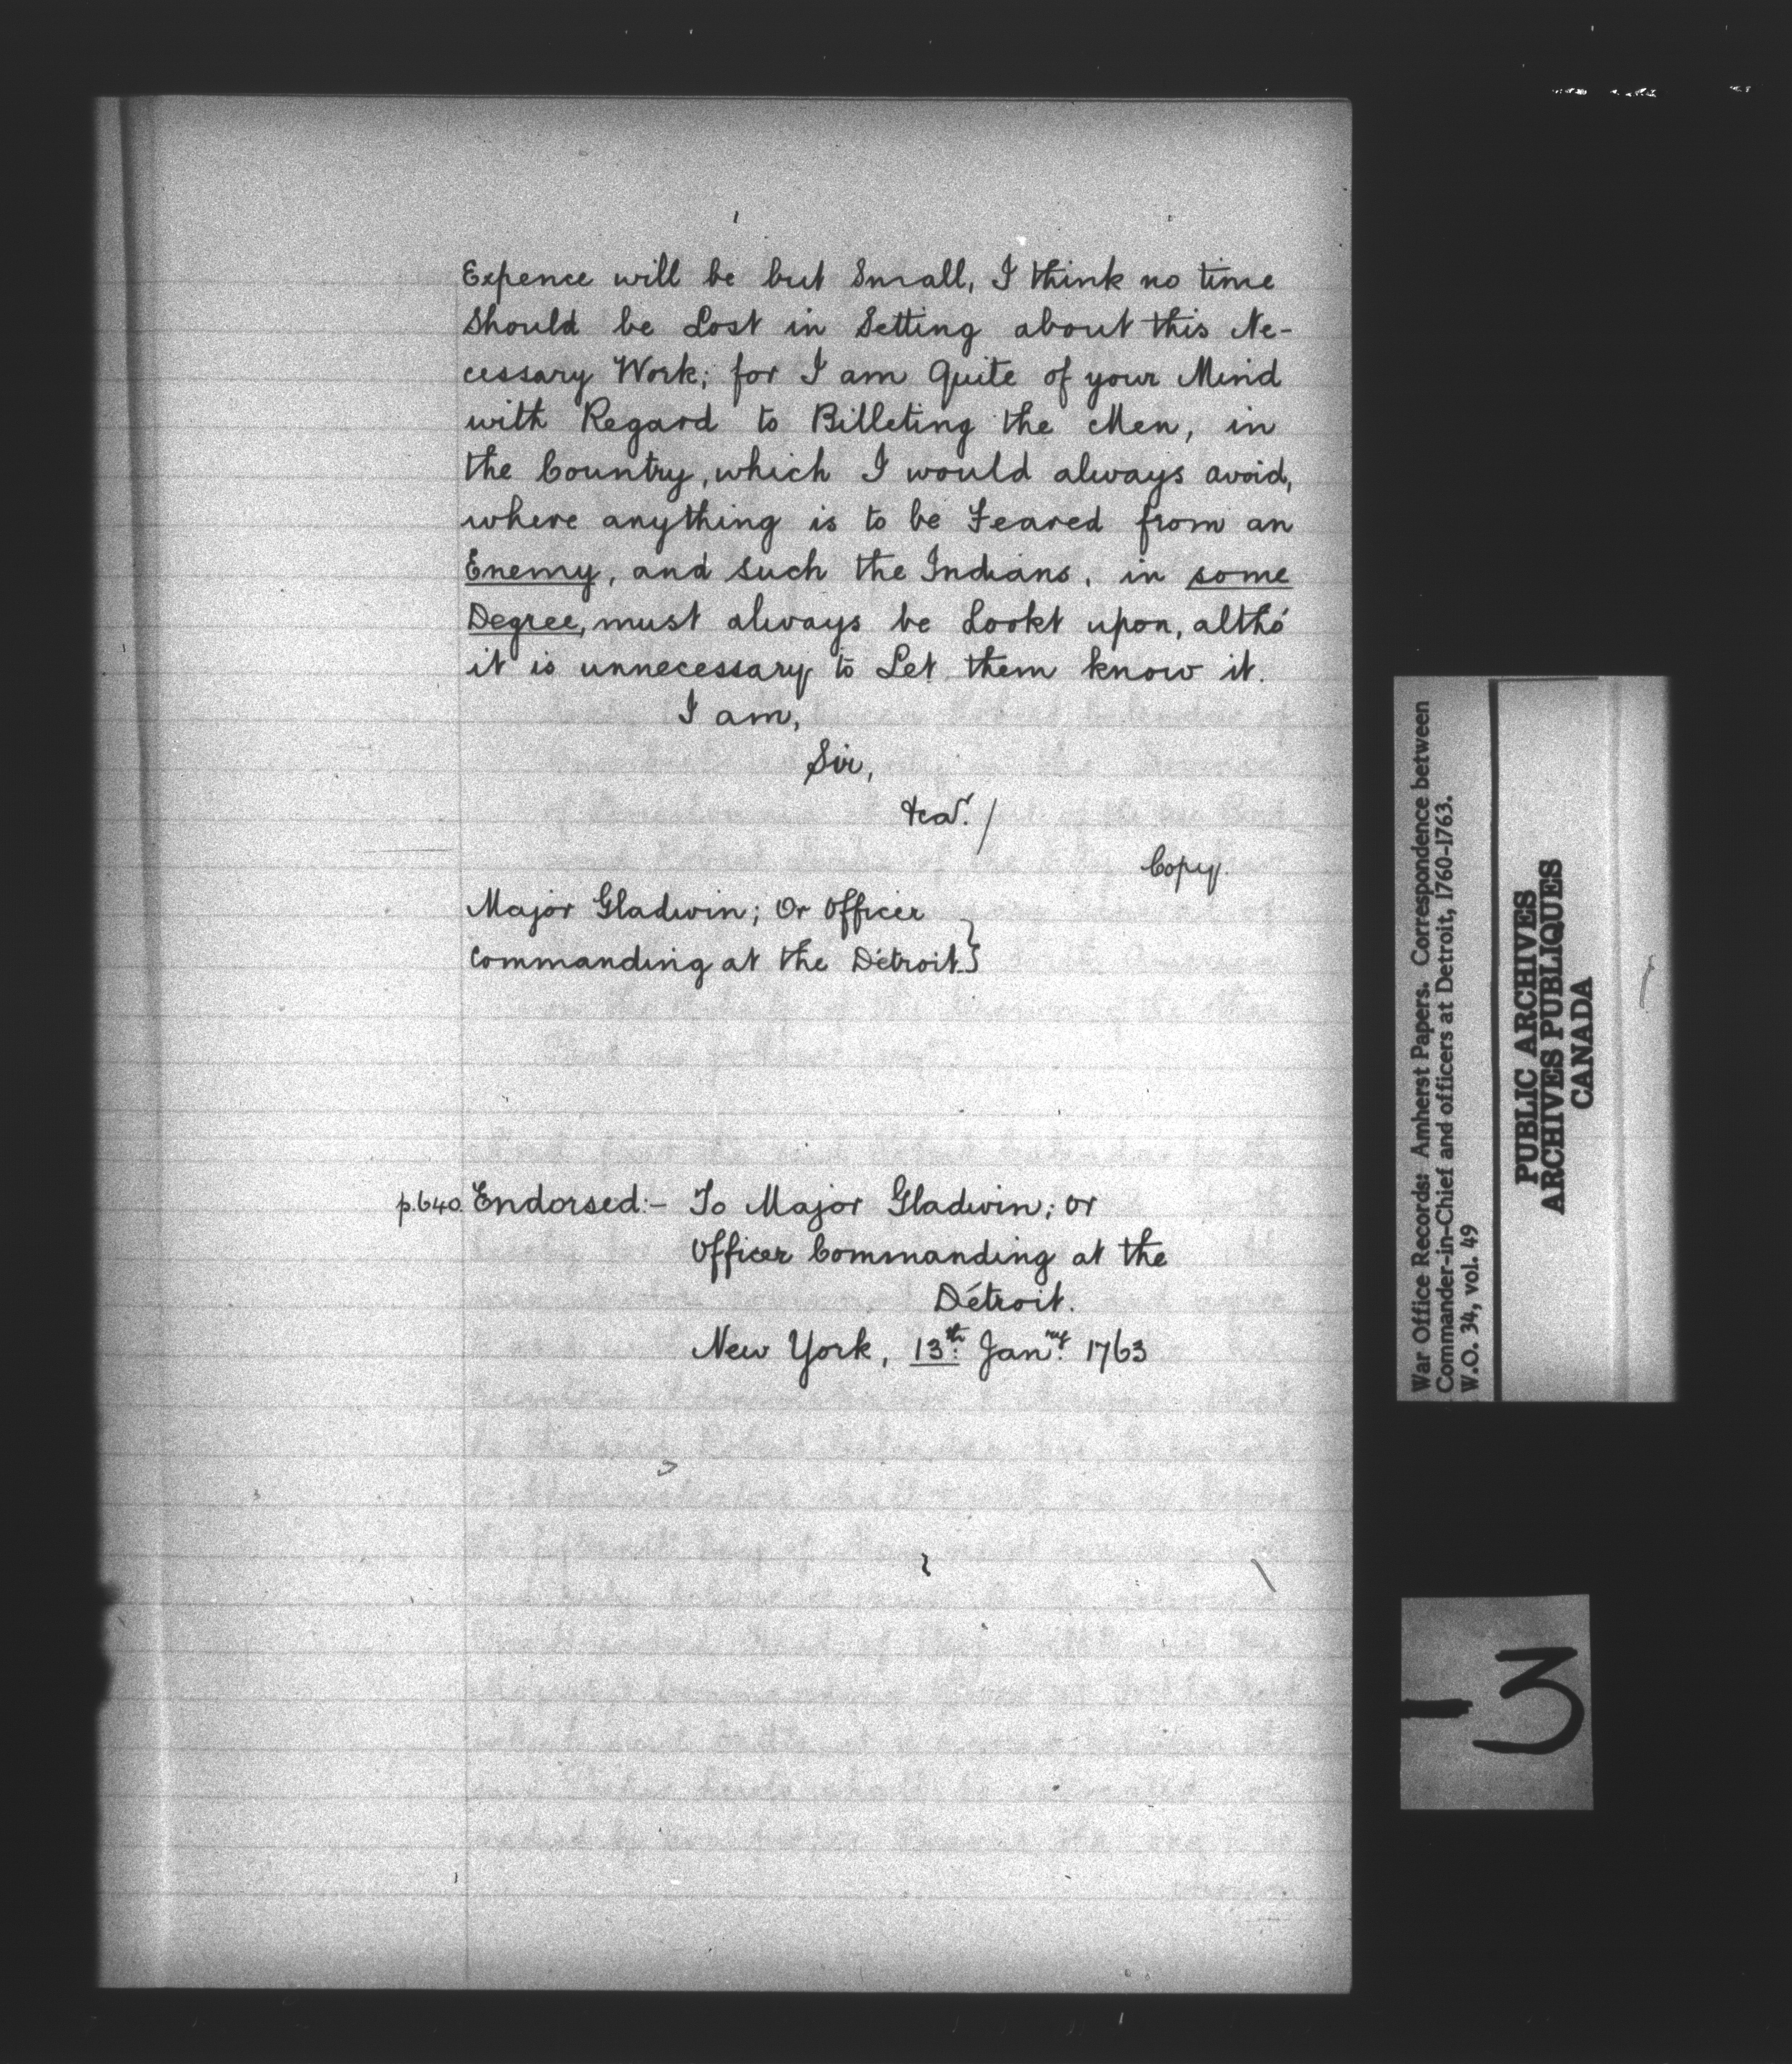 Expence will be but Small, I think no time
Should be Lost in Setting about this Ne-
cessary Work; for I am Quite of your Mind
with Regard to Billeting the Men, in
the Country, which I would always avoid,
where anything is to be Feared from an
Enemy, and such the Indians, in some
Degree, must always be Lookt upon, altho'
it is unnecessary to Let them know it.
I am,
Sir,
&ca. /
Copy.
Major Gladwin; Or Officer
Commanding at the Détroit. }
p.640. Endorsed:- To Major Gladwin; or
Officer Commanding at the
Détroit.
New York, 13th. Janry. 1763
War Office Records: Amherst Papers. Correspondence between
Commander-in-Chief and officers at Detroit, 1760-1763.
W.O. 34, vol. 49
PUBLIC ARCHIVES
ARCHIVES PUBLIQUES
CANADA
-3